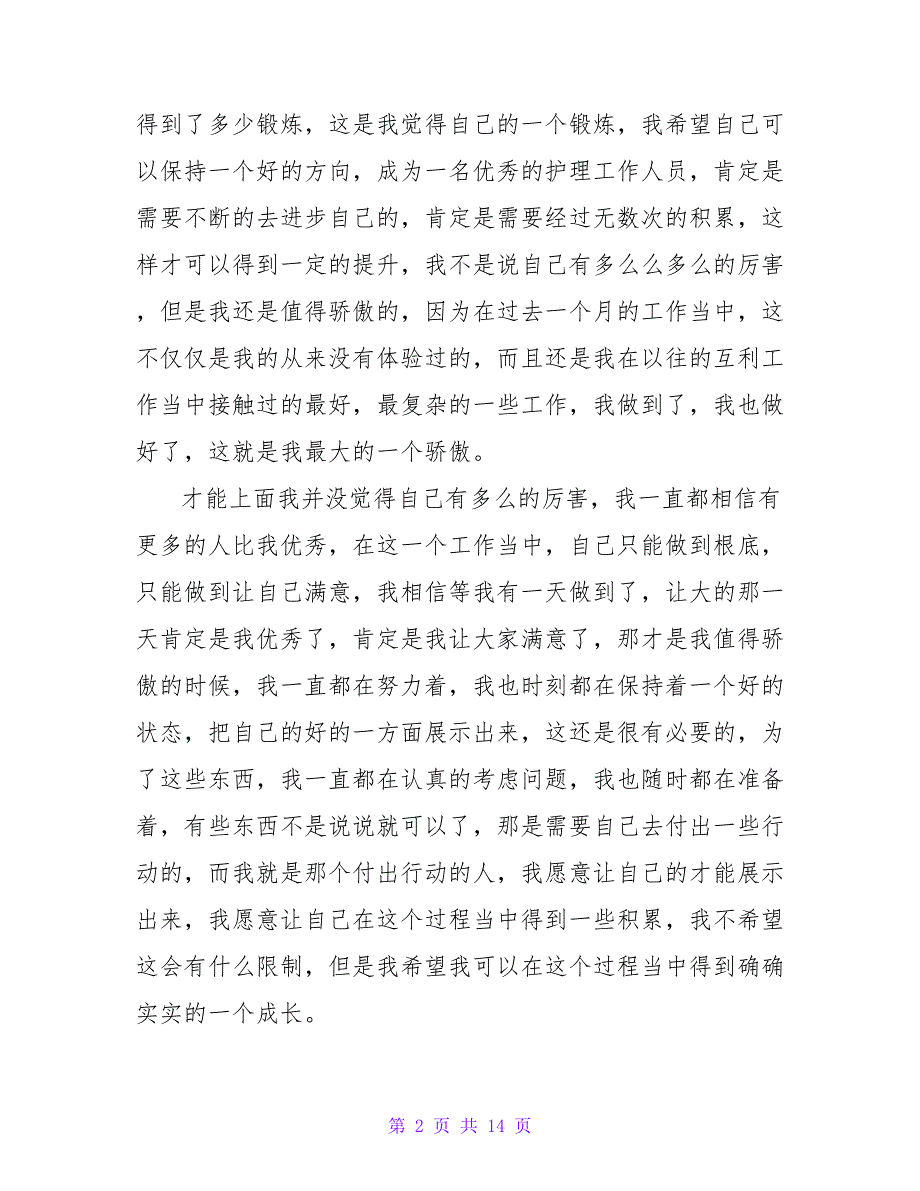 得到了多少锻炼，这是我觉得自己的一个锻炼，我希望自己可
以保持一个好的方向，成为一名优秀的护理工作人员，肯定是
需要不断的去进步自己的，肯定是需要经过无数次的积累，这
样才可以得到一定的提升，我不是说自己有多么么多么的厉害
，但是我还是值得骄傲的，因为在过去一个月的工作当中，这
不仅仅是我的从来没有体验过的，而且还是我在以往的互利工
作当中接触过的最好，最复杂的一些工作，我做到了，我也做
好了，这就是我最大的一个骄傲。
才能上面我并没觉得自己有多么的厉害，我一直都相信有
更多的人比我优秀，在这一个工作当中，自己只能做到根底，
只能做到让自己满意，我相信等我有一天做到了，让大的那一
天肯定是我优秀了，肯定是我让大家满意了，那才是我值得骄
傲的时候，我一直都在努力着，我也时刻都在保持着一个好的
状态，把自己的好的一方面展示出来，这还是很有必要的，为
了这些东西，我一直都在认真的考虑问题，我也随时都在准备
着，有些东西不是说说就可以了，那是需要自己去付出一些行
动的，而我就是那个付出行动的人，我愿意让自己的才能展示
出来，我愿意让自己在这个过程当中得到一些积累，我不希望
这会有什么限制，但是我希望我可以在这个过程当中得到确确
实实的一个成长。
第 2 页 共 14 页